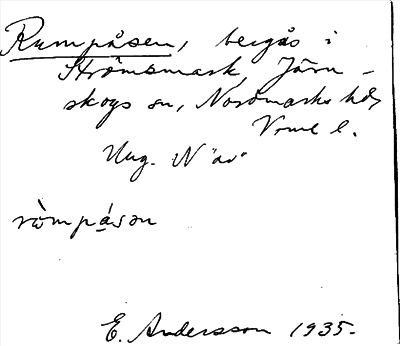 Rumpåsen, bergås i
Strömsmark, Järn-
skogs sn, Nordmarks hd,
Vrml l.
Ung. N
römpåsen
E. Andersson 1935.